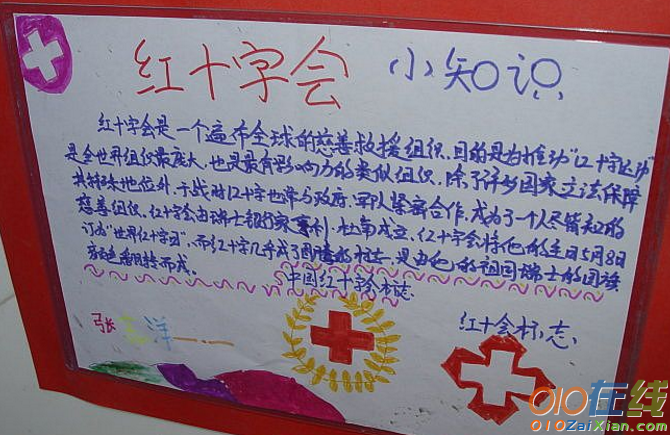 红十字会 小知识
红十字会是一个遍布全球的慈善救援组织,目的是为推动"红十字运动"
是全世界组织最庞大,也是最有影响力的类似组织,除了许多国家立法保障
其特殊地位外,于战时红十字也常与政府、军队紧密合作,成为了一个人尽皆知的
慈善组织。红十字会由瑞士银行家亨利·杜南成立,红十字会将他的生日5月8日
订为"世界红十字日",而红十字几乎成了国 的标志,是由他的祖国瑞士的国旗
颜色 转而成。
中国红十字会标志
红十会标志
张 洋
010在线
010ZaiXian.com